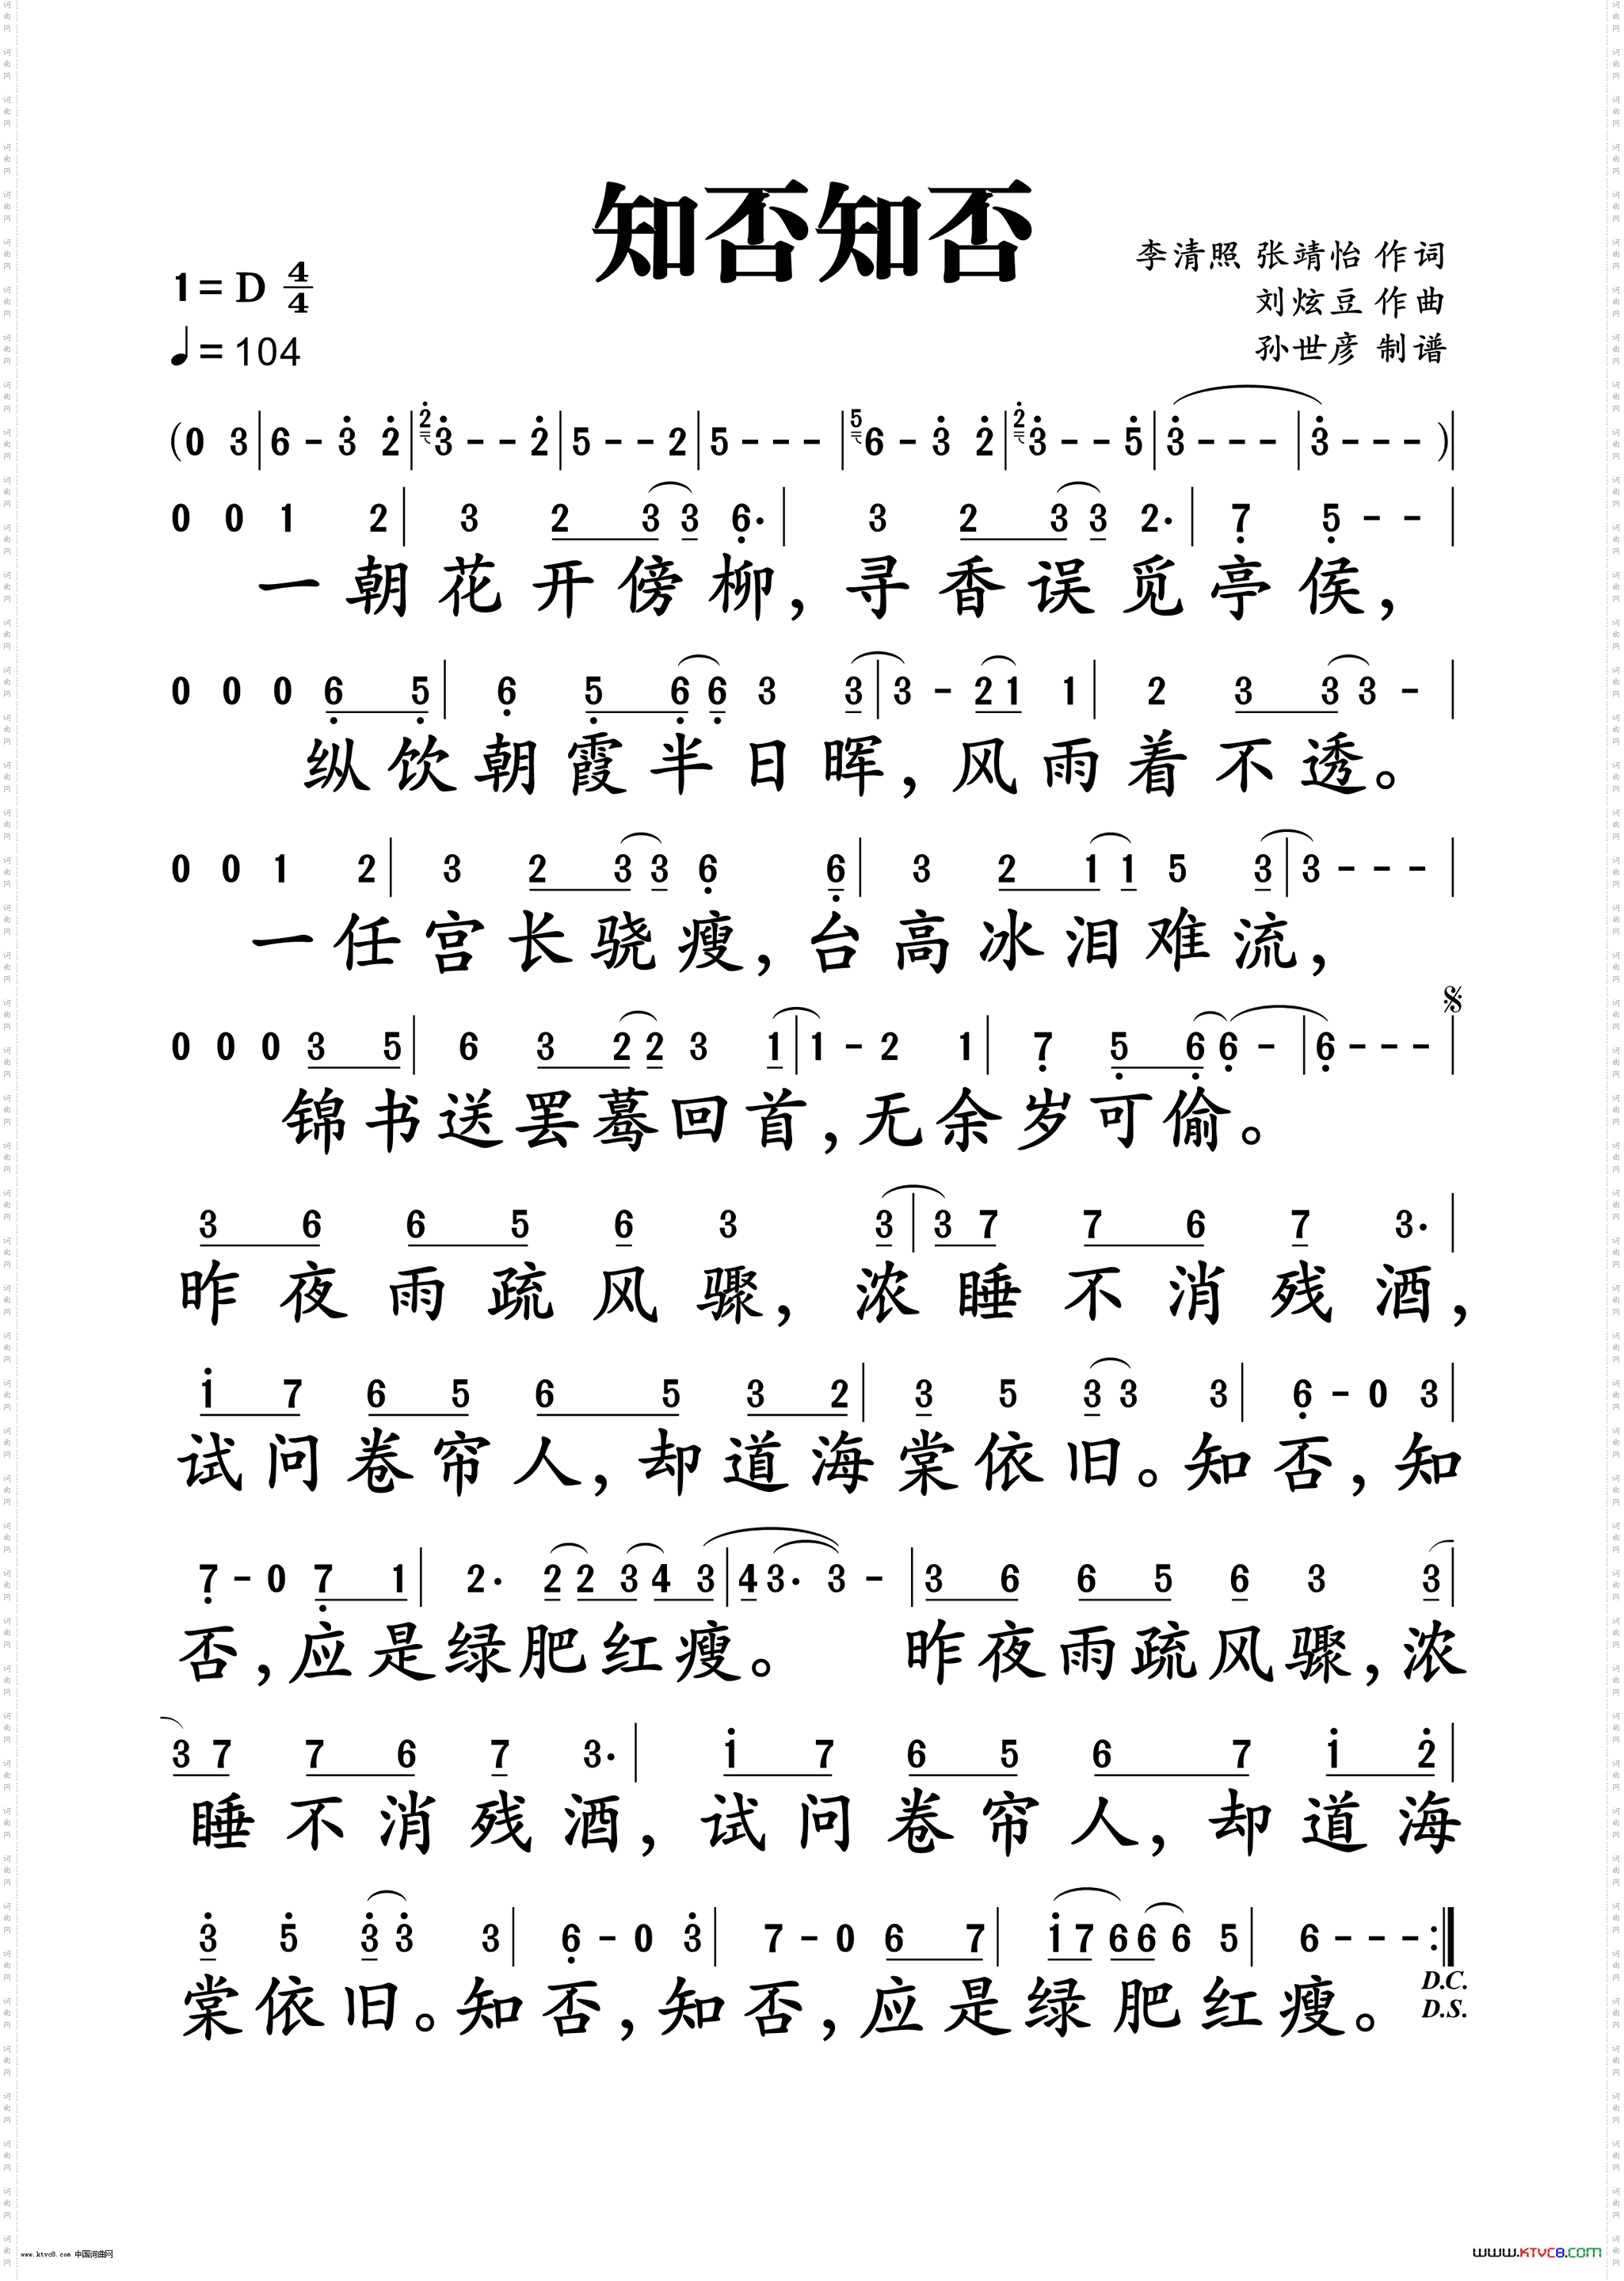 知否知否
1=D 4/4
♩=104
李清照 张靖怡 作词
刘炫豆 作曲
孙世彦 制谱
(0 3|6 - 3̇ 2̇|2̇3̇ - - 2̇|5 - - 2|5 - - -|56 - 3̇ 2̇|2̇3̇ - - 5̇|3̇ - - -|3̇ - - -)|
0 0 1 2|3 2 3 3 6̣.|3 2 3 3 2.|7̣ 5̣ - -|
一朝花开傍柳，寻香误觅亭侯，
0 0 0 6̣ 5̣|6̣ 5̣ 6̣ 6̣ 3 3|3 - 2 1 1|2 3 3 3 -|
纵饮朝霞半日晖，风雨着不透。
0 0 1 2|3 2 3 3 6̣ 6̣|3 2 1 1 5 3|3 - - -|
一任宫长骁瘦，台高冰泪难流，
0 0 0 3 5|6 3 2 2 3 1|1 - 2 1|7̣ 5̣ 6̣ 6̣ -|6̣ - - -|
锦书送罢蓦回首，无余岁可偷。
3 6 6 5 6 3 3|3 7 7 6 7 3.|
昨夜雨疏风骤，浓睡不消残酒，
1̇ 7 6 5 6 5 3 2|3 5 3 3 3|6̣ - 0 3|
试问卷帘人，却道海棠依旧。知否，知
7̣ - 0 7̣ 1|2. 2 2 3 4 3|4 3. 3 -|3 6 6 5 6 3 3|
否，应是绿肥红瘦。 昨夜雨疏风骤，浓
3 7 7 6 7 3.|1̇ 7 6 5 6 7 1̇ 2̇|
睡不消残酒，试问卷帘人，却道海
3̇ 5̇ 3̇ 3̇ 3|6̣ - 0 3̇|7 - 0 6 7|1̇ 7 6 6 6 5|6 - - -:|
D.C.
棠依旧。知否，知否，应是绿肥红瘦。
D.S.
www.ktvc8.com 中国词曲网
www.KTVC8.COM